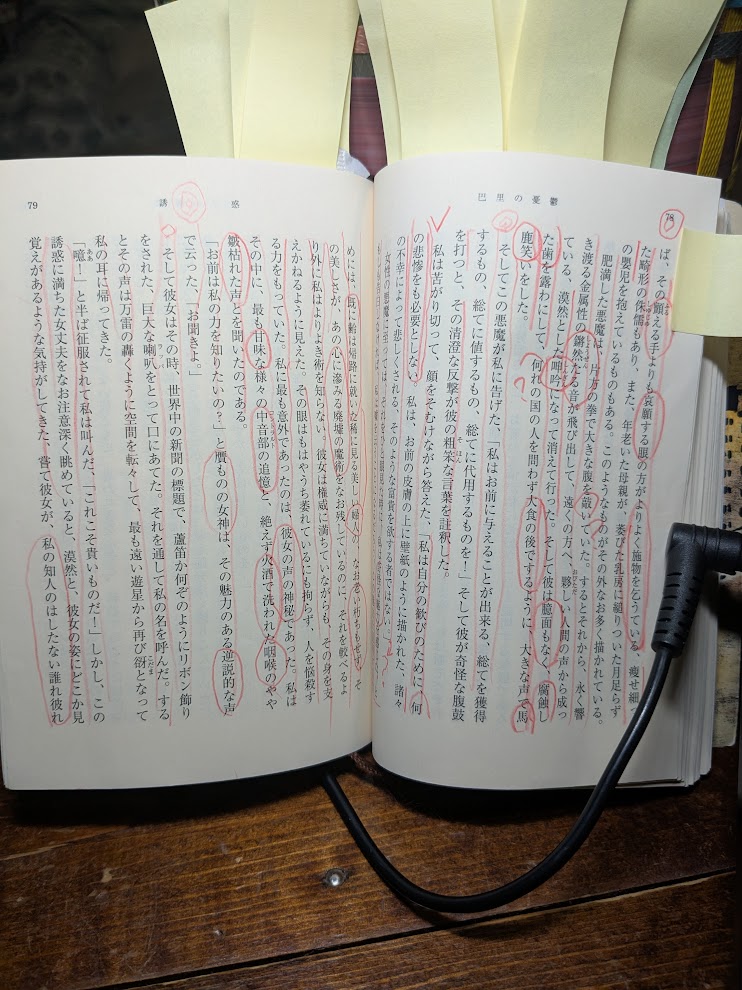 78
巴里の憂鬱
ば、その顫える手よりも哀願する眼の方がよりよく施物を乞うている、痩せ細っ
た畸形の侏儒もあり、また、年老いた母親が、萎びた乳房に縋りついた月足らず
の嬰児を抱えているものもある。このようなものがその外なお多く描かれている。
肥満した悪魔は、片方の拳で大きな腹を敲いていた。するとそれから、永く響
き渡る金属性の鏘然たる音が飛び出して、遠くの方へ、夥しい人間の声から成っ
ている、漠然とした呻吟になって消えて行った。そして彼は臆面もなく、腐蝕し
た歯を露わにして、何れの国の人を問わず大食の後でするように、大きな声で馬
鹿笑いをした。
そしてこの悪魔が私に告げた、「私はお前に与えることが出来る、総てを獲得
するもの、総てに値するもの、総てに代用するものを！」そして彼が奇怪な腹鼓
を打つと、その清澄な反響が彼の粗笨な言葉を註釈した。
私は苦がり切って、顔をそむけながら答えた、「私は自分の歓びのために、何
の悲惨をも必要としない。私は、お前の皮膚の上に壁紙のように描かれた、諸々
の不幸によって悲しくされる、そのような富貴を欲する者ではない。」
女性の悪魔に至っては、
79
誘惑
めには、既に齢は帰路に就いた稀に見る美しい婦人の、なお老い朽ちもせず、そ
の美しさが、あの心に滲みる廃墟の魔術をなお残しているのに、それを較べるよ
り外に私はよりよき術を知らない。彼女は権威に満ちていながらも、その身を支
えかねるように見えた。その眼はもはやうち萎れているにも拘らず、人を悩殺す
る力をもっていた。私に最も意外であったのは、彼女の声の神秘であった。私は
その中に、最も甘味な様々の中音部の追憶と、絶えず火酒で洗われた咽喉のやや
皺枯れた声とを聞いたのである。
「お前は私の力を知りたいの？」と贋ものの女神は、その魅力のある逆説的な声
で云った、「お聞きよ。」
そして彼女はその時、世界中の新聞の標題で、蘆笛か何ぞのようにリボン飾り
をされた、巨大な喇叭をとって口にあてた。それを通して私の名を呼んだ。する
とその声は万雷の轟くように空間を転々して、最も遠い遊星から再び谺となって
私の耳に帰ってきた。
「噫！」と半ば征服されて私は叫んだ、「これこそ貴いものだ！」しかし、この
誘惑に満ちた女丈夫をなお注意深く眺めていると、漠然と、彼女の姿にどこか見
覚えがあるような気持がしてきた、嘗て彼女が、私の知人のはしたない誰れ彼れ